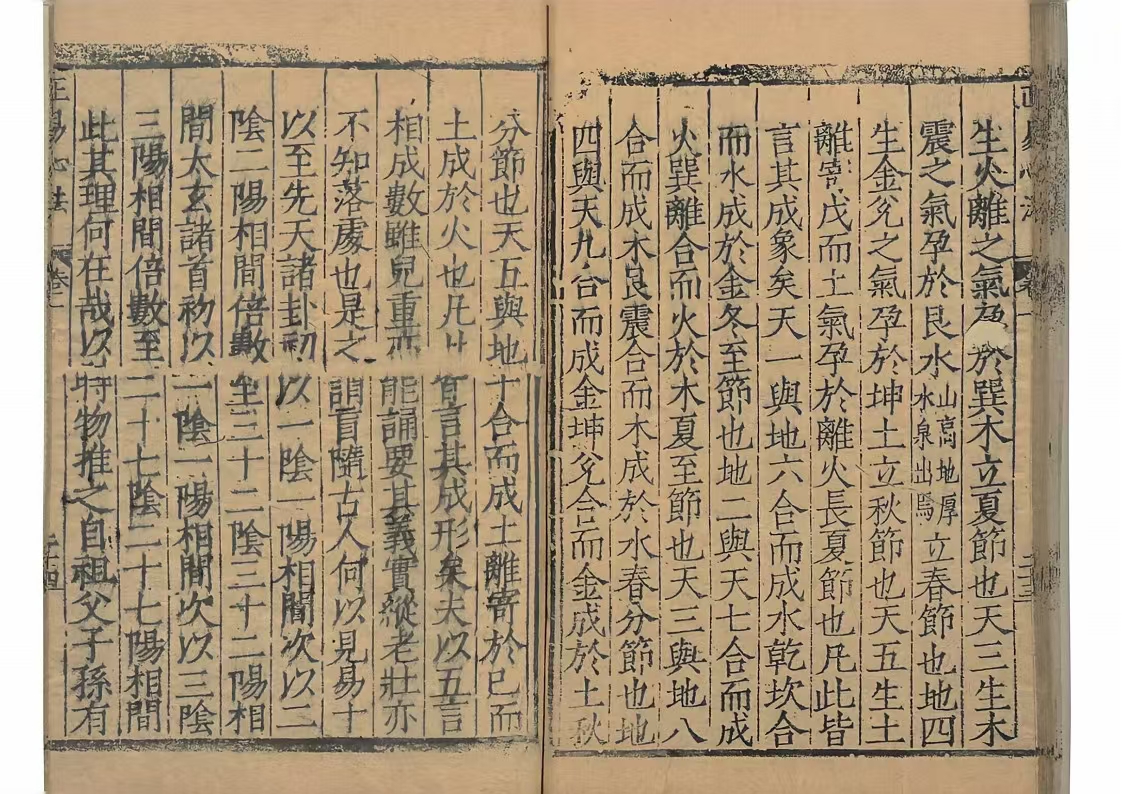 正易心法
卷一
生火離之氣孕於巽木立夏節也天三生木
震之氣孕於艮水山高地厚水泉出焉立春節也地四
生金兌之氣孕於坤土立秋節也天五生土
離寄戊而土氣孕於離火長夏節也凡此皆
言其成象矣天一與地六合而成水乾坎合
而水成於金冬至節也地二與天七合而成
火巽離合而火於木夏至節也天三與地八
合而成木艮震合而木成於水春分節也地
四與天九合而成金坤兌合而金成於土秋
分節也天五與地十合而成土離寄於已而
土成於火也凡此皆言其成形矣夫以五言
相成數雖兒重亦能誦要其義實縱老壯亦
不知落處也是之謂盲隨古人何以見易十
以至先天諸卦初以一陰一陽相間次以二
陰二陽相間倍數至三十二陰三十二陽相
間太玄諸首初以一陰一陽相間次以三陰
三陽相間倍數至二十七陰二十七陽相間
此其理何在哉以時物推之自祖父子孫有
正易心法